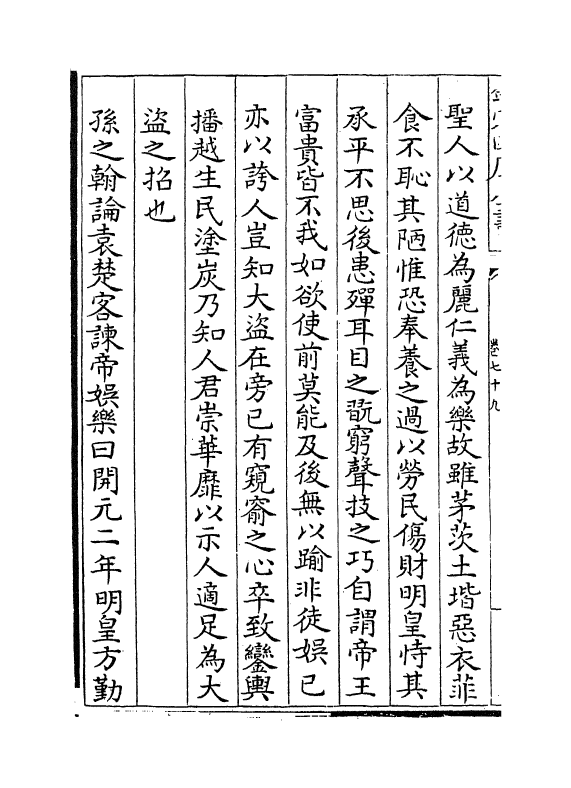 聖人以道德為麗仁義為樂故雖茅茨土堦惡衣菲
食不恥其陋惟恐奉養之過以勞民傷財明皇恃其
承平不思後患殫耳目之翫窮聲技之巧自謂帝王
富貴皆不我如欲使前莫能及後無以踰非徒娯己
亦以誇人豈知大盜在旁已有窺窬之心卒致鑾輿
播越生民塗炭乃知人君崇華靡以示人適足為大
盜之招也
孫之翰論袁楚客諫帝娯樂曰開元二年明皇方勤
卷七十九